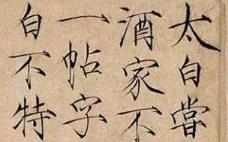 太白嘗
酒家不
一帖字
白不特